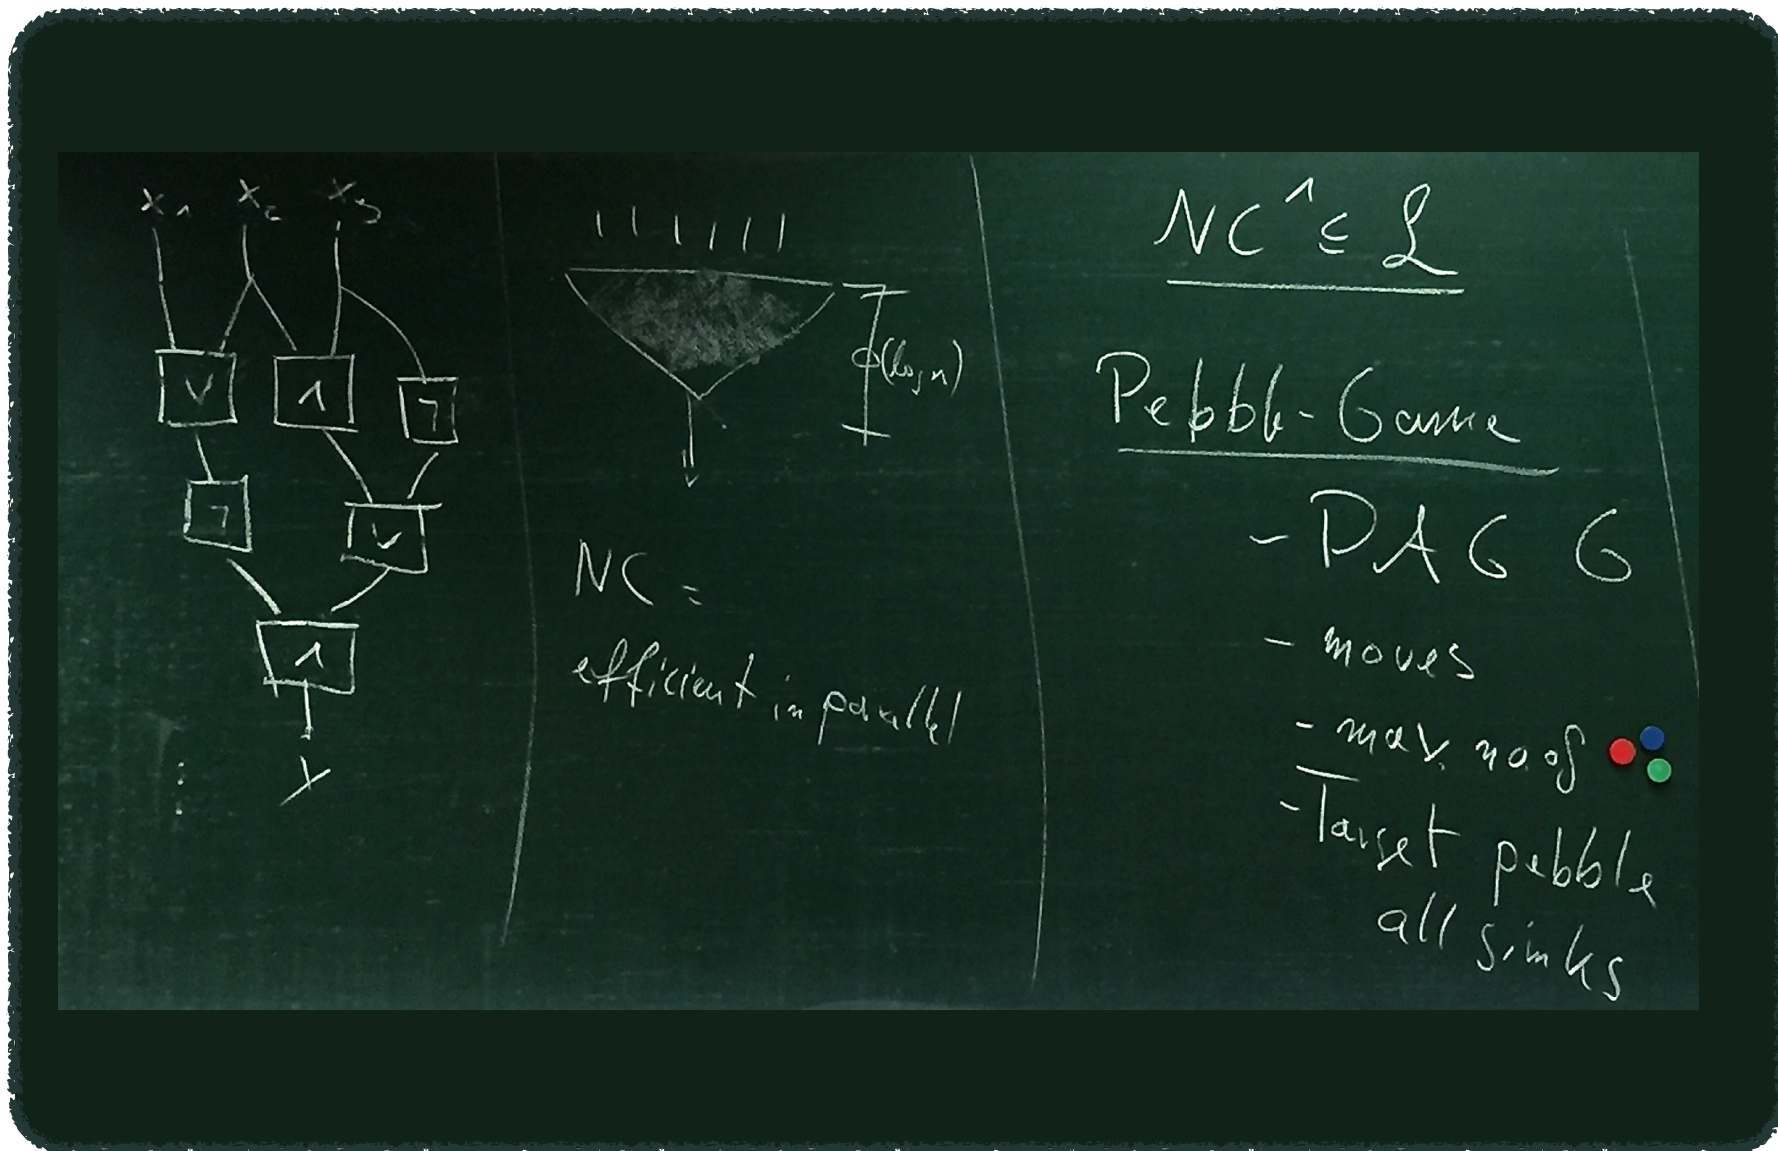 x₁ x₂ x₃
∨ ∧ ¬
¬ ∨
∧
y
O(log n)
NC =
efficient in parallel
NC¹ ⊆ L
Pebble-Game
- DAG G
- moves
- max. no of
- Target pebble
all sinks